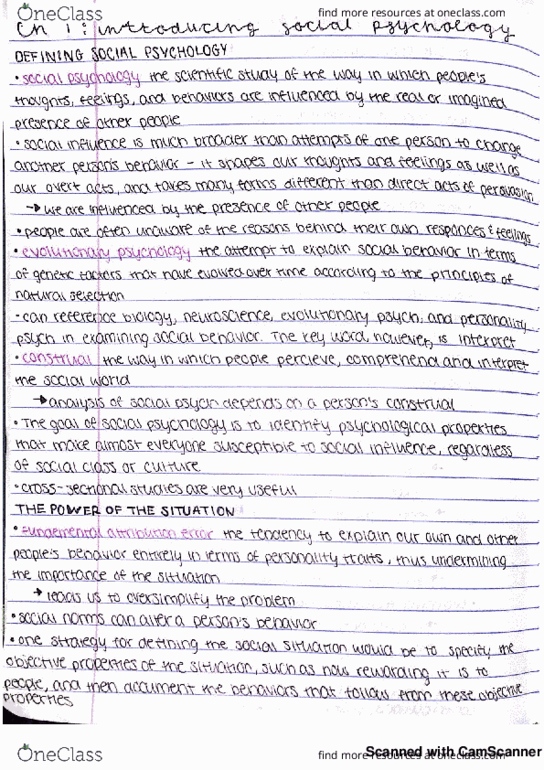 OneClass
find more resources at oneclass.com
Ch 1: introducing social psychology
DEFINING SOCIAL PSYCHOLOGY
• social psychology the scientific study of the way in which people's
thoughts, feelings, and behaviors are influenced by the real or imagined
presence of other people
• social influence is much broader than attempts of one person to change
another person's behavior - it shapes our thoughts and feelings as well as
our overt acts, and takes many forms different than direct acts of persuasion
→ we are influenced by the presence of other people
• people are often unaware of the reasons behind their own responces & feelings
• evolutionary psychology the attempt to explain social behavior in terms
of genetic factors that have evolved over time according to the principles of
natural selection
• can reference biology, neuroscience, evolutionary psych, and personality
psych in examining social behavior. The key word, however, is interpret
• construal the way in which people percieve, comprehend and interpret
the social world
→ analysis of social psych depends on a person's construal
• The goal of social psychology is to identify psychological properties
that make almost everyone susceptible to social influence, regardless
of social class or culture
• cross-sectional studies are very useful
THE POWER OF THE SITUATION
• fundamental attribution error the tendency to explain our own and other
people's behavior entirely in terms of personality traits, thus undermining
the importance of the situation
→ leads us to oversimplify the problem
• social norms can alter a person's behavior
• one strategy for defining the social situation would be to specify the
objective properties of the situation, such as how rewarding it is to
people, and then document the behaviors that follow from these objective
properties
OneClass
find more resources at oneclass.com
Scanned with CamScanner